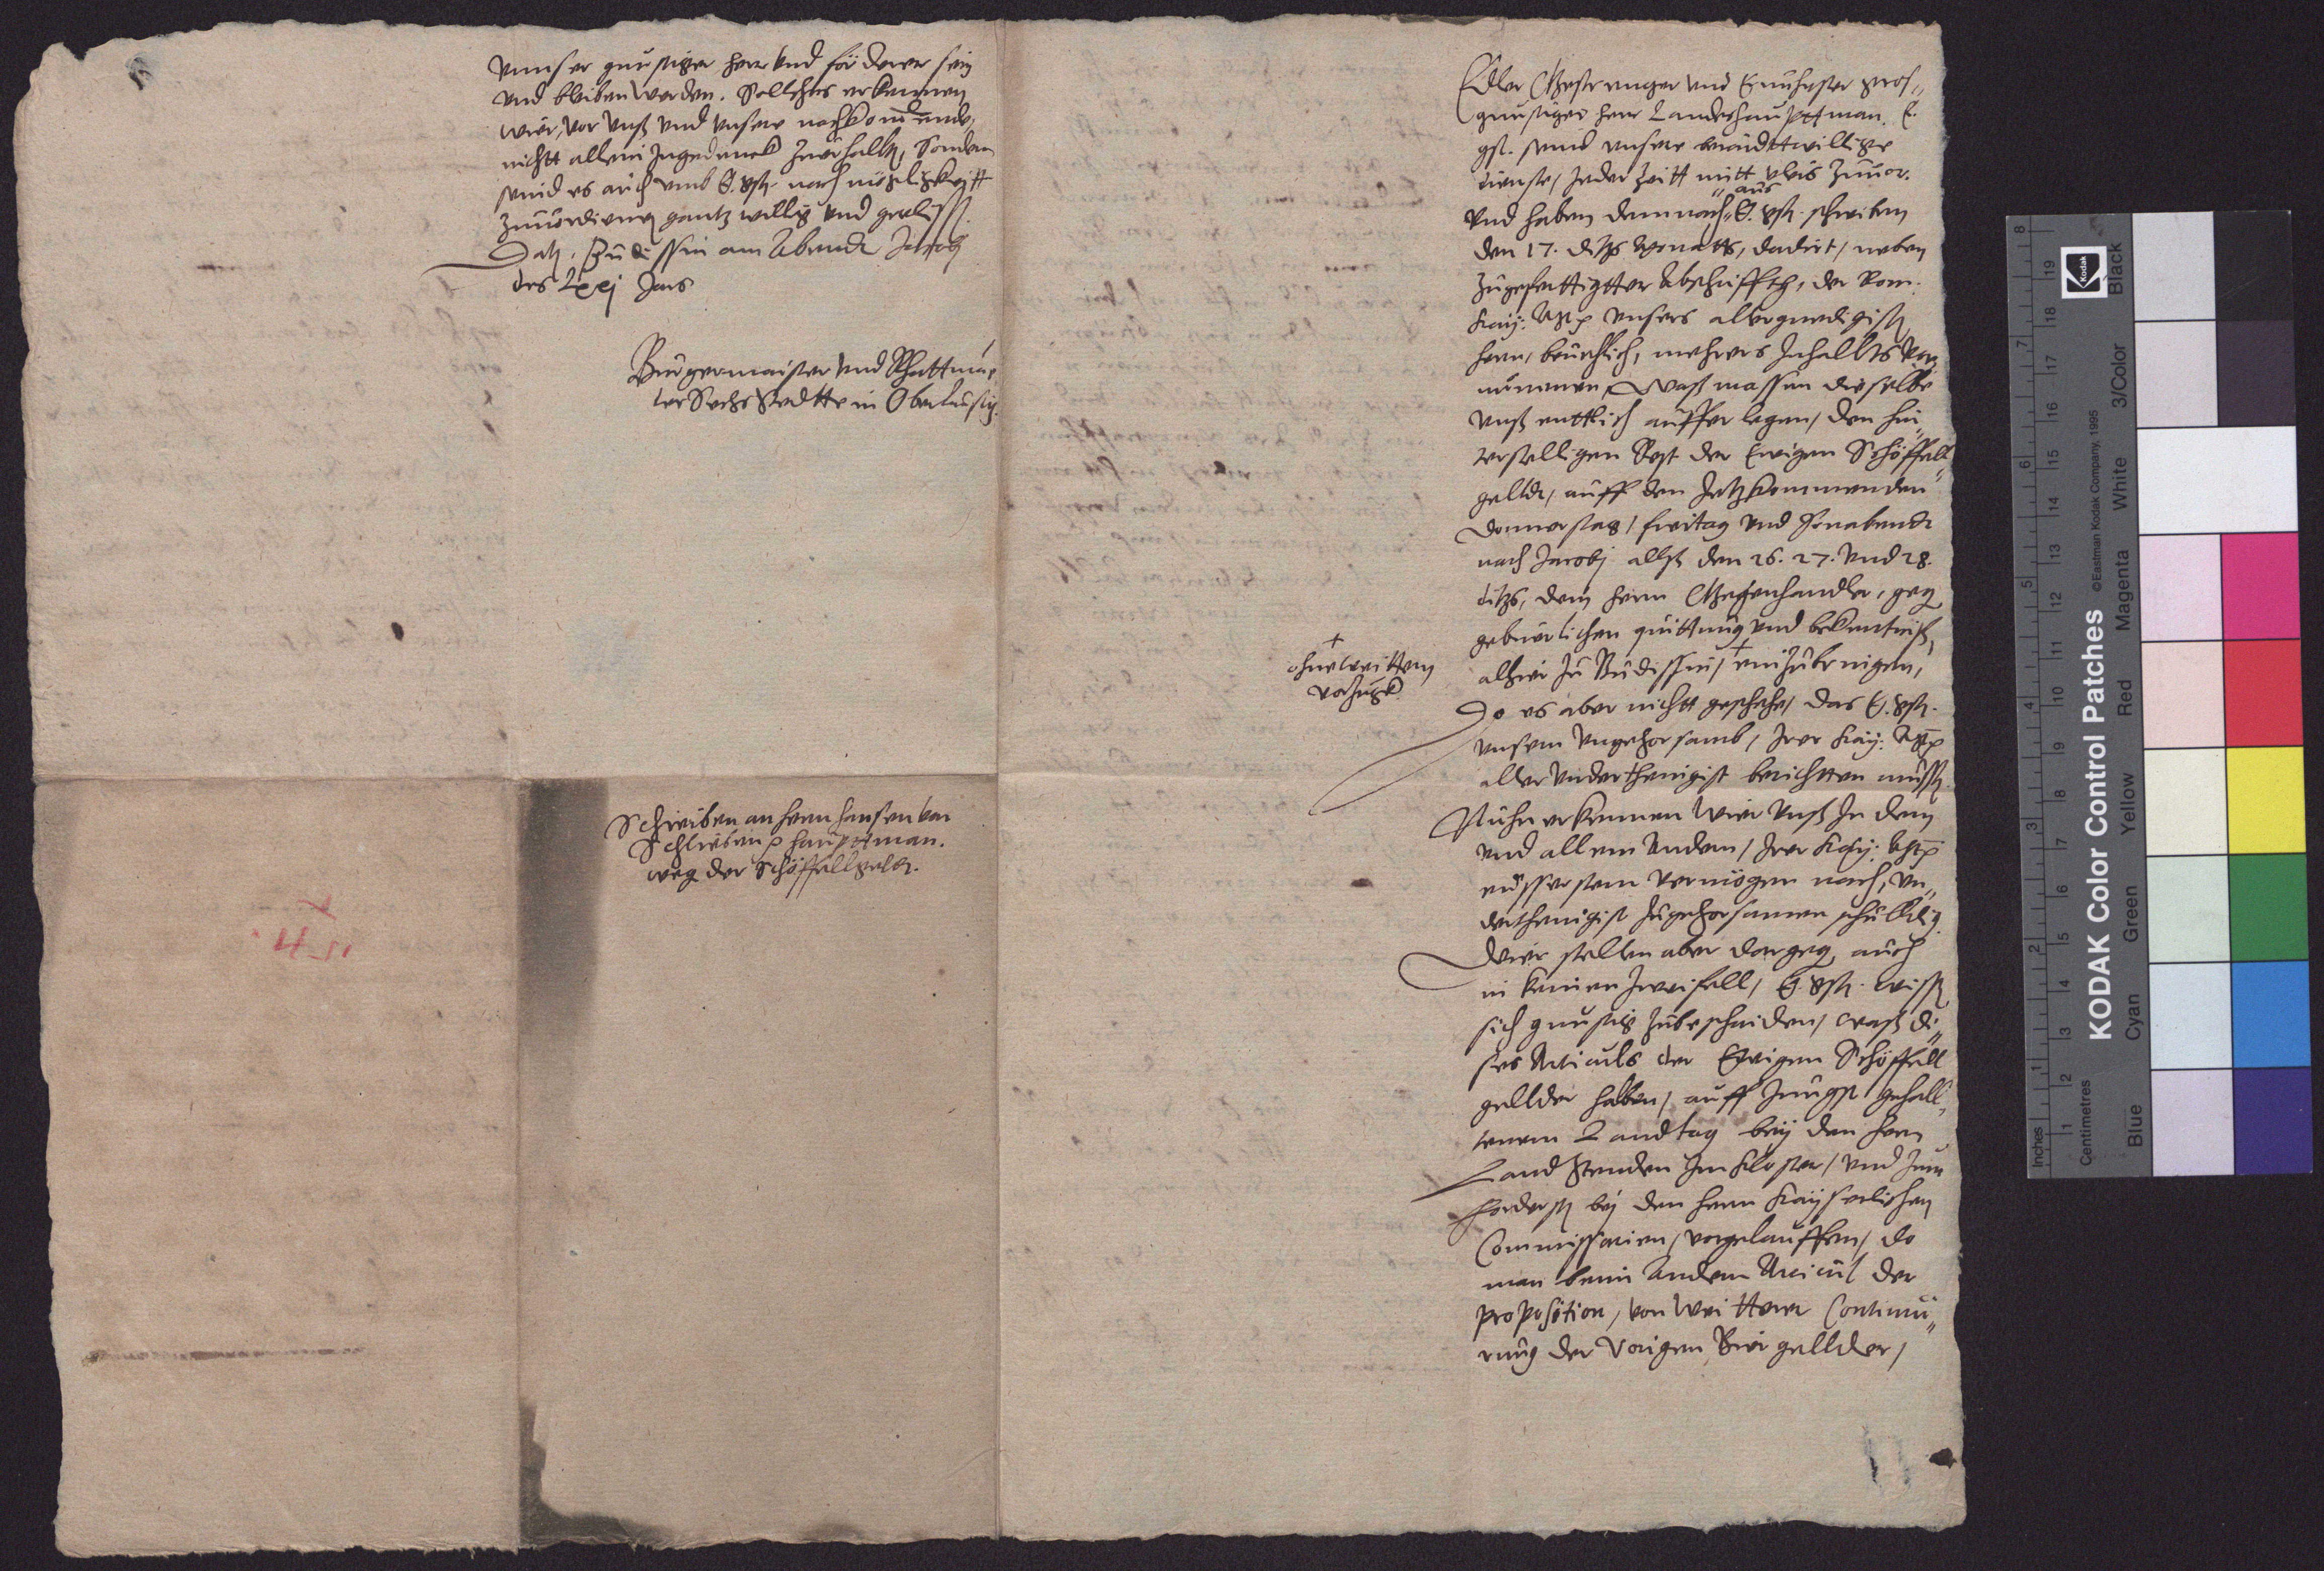 Edler Gestrenger und Ernuhester gros„
gunstiger herr Landeshauptman. E.
gst. seind unsere unvordrossen willige
dienste, Jeder Zeitt mitt vleis Zuuor.
Und haben demnach aus E. gst. schreiben
den 17. ditz Monatts, dadirt, neben
Zugefertigtter Abschrifftt, der Rom.
Kay: Mtt unsers allergnedigisten
hern, beuehlich, mehres Inhallts vor„
nummen, Waß massen dieselbe
unß entlich aufferlegen, den hin„
terstelligen Rest der Ewigen Schöffell„
gellde, auff den Jetzkommenden
Donnerstag, freitag und Sonabendt
nach Jacobj allß den 26. 27. und 28.
ditzs, dem herrn Gegenhandler, gegen
gebürlichen quittung und bekentniß,
alhier zu Budissin, + einzubringen,
+
ohne weittern
vorzugk
Do es aber nichtt geschehe, das E. gst.
unsern ungehorsamb, Irer Kay: Mtt
aller underthenigist berichtten müssten.
Nuhn erkennen wir unß In dem
und allem Andern, Irer Kay: Mtt
eusserstem vermögen nach, un„
derthenigist zugehorsamen schulldig.
Wier stellen aber dargegen, auch
in keinen zweifell, E. gst. wissen
sich gunstig zubescheiden, waß di„
ses Articuls der Ewigen Schöffell
gellder halben, auff Jungst gehall„
tenem Landtag bey den hern
Land Stenden Im Kloster, und zum
fordersten bey den herrn Kayserlichen
Commissarien, vorgelauffen, do
man beim Andern Articul der
proposition, von weitterer Continui„
rung der vorigen Bier gellder,
unser gunstiger herr und förderer sein
und bleiben werden. Sollches erkennen
wier, vor unß und unsere nachkommende,
nichtt allein Ingedenck zuerhallten, Sondern
seind es auch umb E. gst. nach müglickeitt
zuuordienen gantz willig und geulissen.
Datum, Budissin am Abende Jacobj
des Lxxj Jars
Burgermeister und Rhattmanne
der Sechs Stedtte in Oberlausitz.
Schreiben an herrn hansen von
Schlieben hauptman.
wegen der Schöffellgelde.